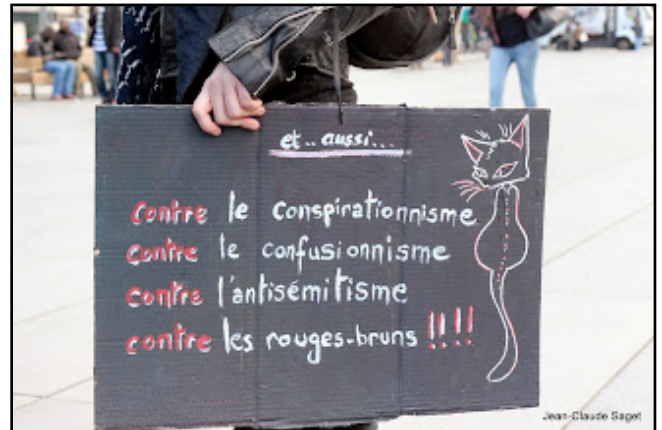 et.. aussi...
contre le conspirationnisme
contre le confusionnisme
contre l'antisémitisme
contre les rouges-bruns !!!!
Jean-Claude Saget